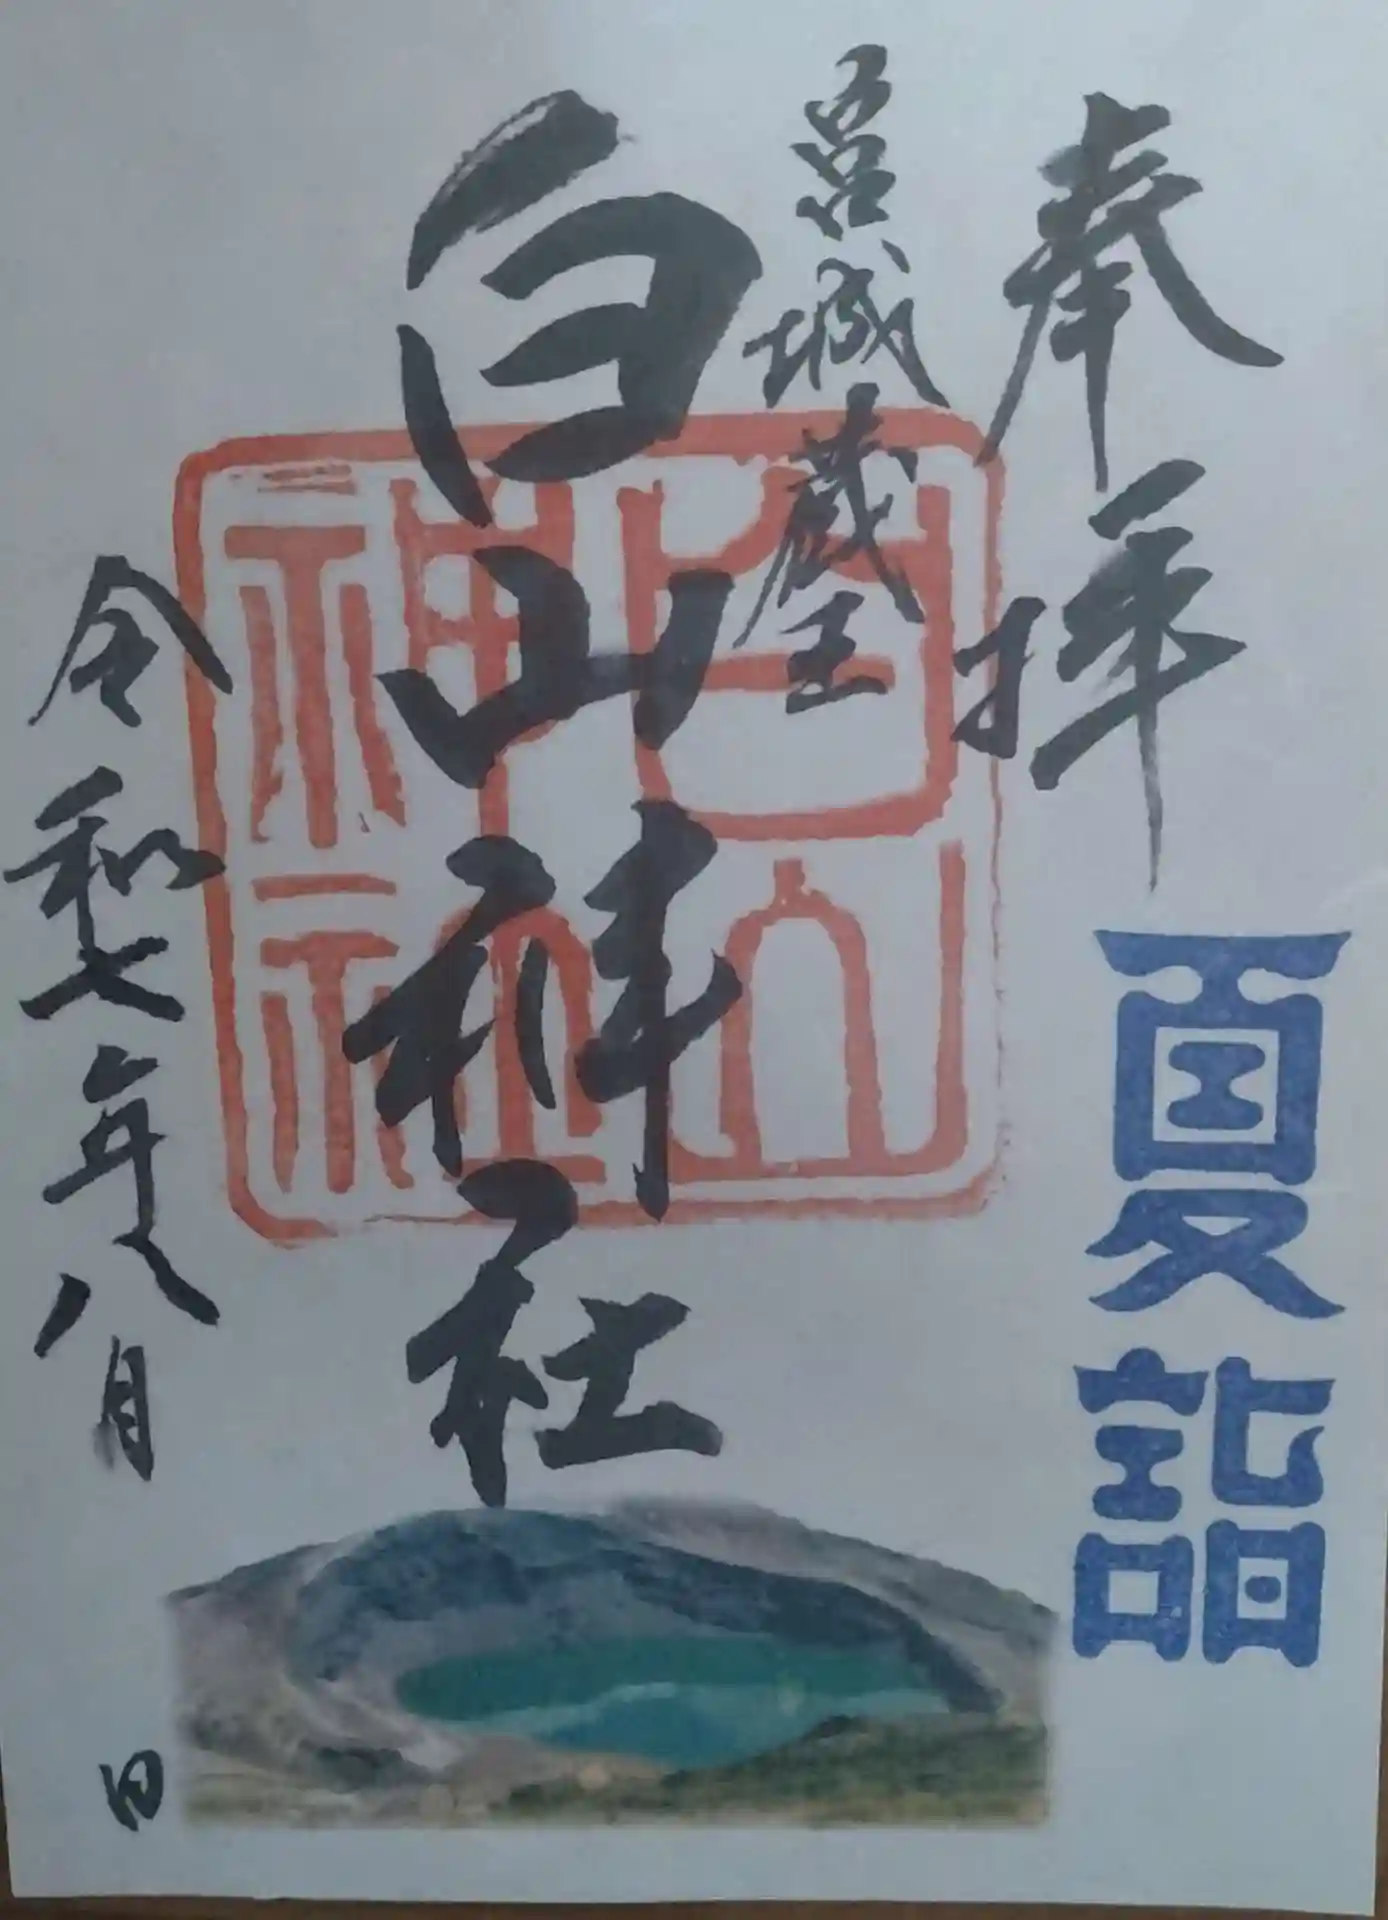 奉拝
夏詣
宮城蔵王
白山神社
令和七年八月 日
白山
神社